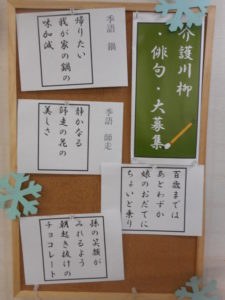 介護川柳
・俳句・大募集
季語 鍋
帰りたい
我が家の鍋の
味加減
季語 師走
静かなる
師走の花の
美しさ
百歳までは
あとわずか
娘のおだてに
ちょいと乗り
孫の笑顔が
みれるよう
朝起き抜けの
チョコレート